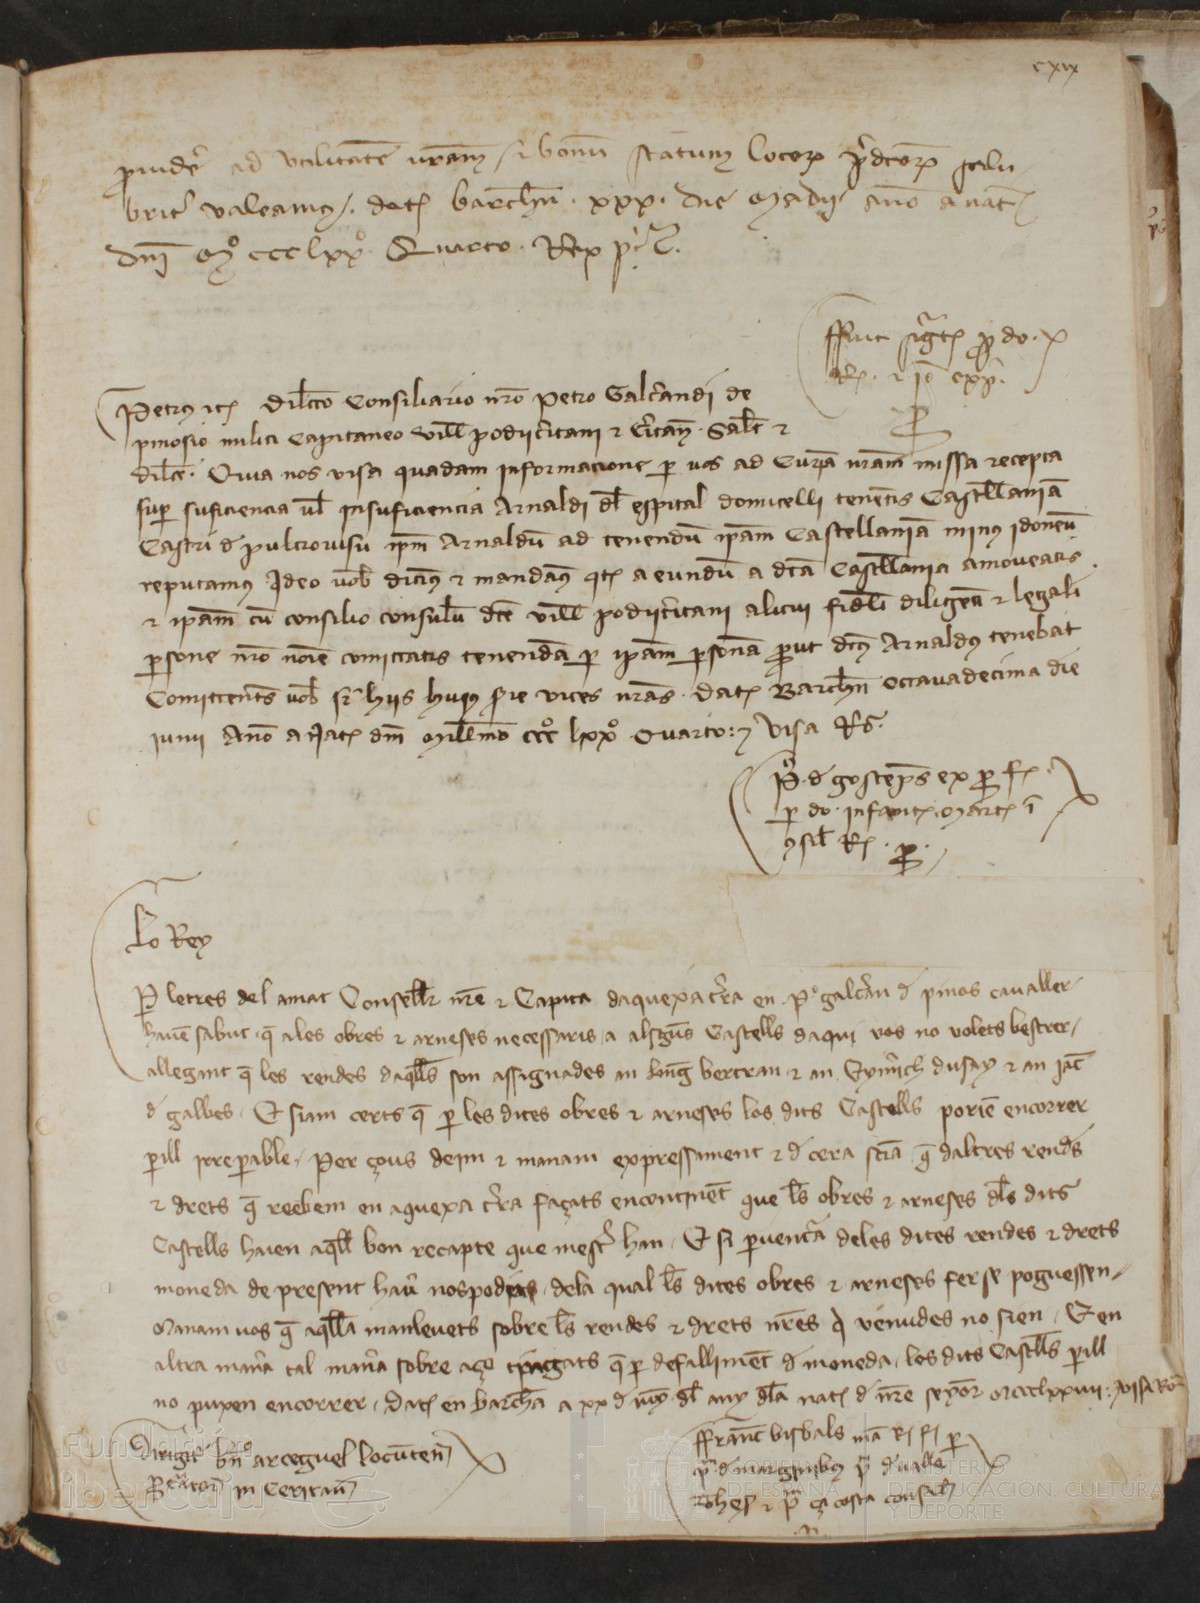 cxix
providere ad utilitatem vestram et bonum statum locorum predictorum salu
briter valeamus. datum barchinone xxx die madii anno a nativitate
domini Mº ccc lxxº Quarto. Rex petrus.
ffuit signata pro do.
Petrus etc dilecto Consiliario nostro Petro Galcerandi de
pinosio militi Capitaneo ville podiiceritani et Ceritanie. Salutem et
dilectionem. Quia nos visa quadam informacione per vos ad Curiam nostram missa recepta
super suficiencia vel insuficiencia Arnaldi del espital domicelli tenentis Castellaniam
Castri de pulcrovisu ipsum Arnaldum ad tenendum ipsam Castellaniam minus idoneum
reputamus Ideo vobis dicimus et mandamus quatenus eundum a dicta Castellania amoveatis
et ipsam cum consilio consulum dicte ville podiiceritani alicui fideli diligenti et legali
persone nostro nomine comittatis tenendam per ipsam personam prout dictus Arnaldus tenebat
Comittentes vobis super hiis huius serie vices nostras. datum Barchinone octavadecima die
iunii Anno a Nativitate domini Millesimo cccº lxxº Quarto. visa Ro.
P. de gostemps ex pro
per do. infantem Martinum in
consilio R.
Lo Rey
Per letres del amat Conseller nostre et Capita daquexa terra en P. galceran de pinos cavaller
havem sabut que a les obres et arneses necessaris a alscuns Castells daqui vos no volets bestrer
allegant que les rendes daquells son assignades an berenguer bertran et an Eymerich dusay et an iacme
de galbes. Et siam certs que per les dites obres et arneses los dits Castells porien encorrer
perill irreparable. Per ço us deim et manam expressament et de certa sciencia que daltres rendes
et drets que reebem en aquexa terra façats encontinent que les obres et arneses dels dits
Castells haien aquell bon recapte que mester han. Et si per ventura deles dites rendes et drets
moneda de present haver nos podia, dela qual les dites obres et arneses fer se poguessen
Manam vos que aquella manlevets sobre les rendes et drets nostres qui venudes no sien. Et en
altra manera tal manera sobre aço tingats que per defalliment de moneda los dits Castells perill
no puxen encorrer. datum en barchinona a xx de juny del any dela nativitat de nostre senyor Mccclxxiiii. visa Ro.
dirigitur bernardo arceguel locumtenenti
procuratoris in Ceritania
ffranciscus bisbals mandato R. f. per
P. de margenibus P. de valle
thes. et P. ça costa consiliarios